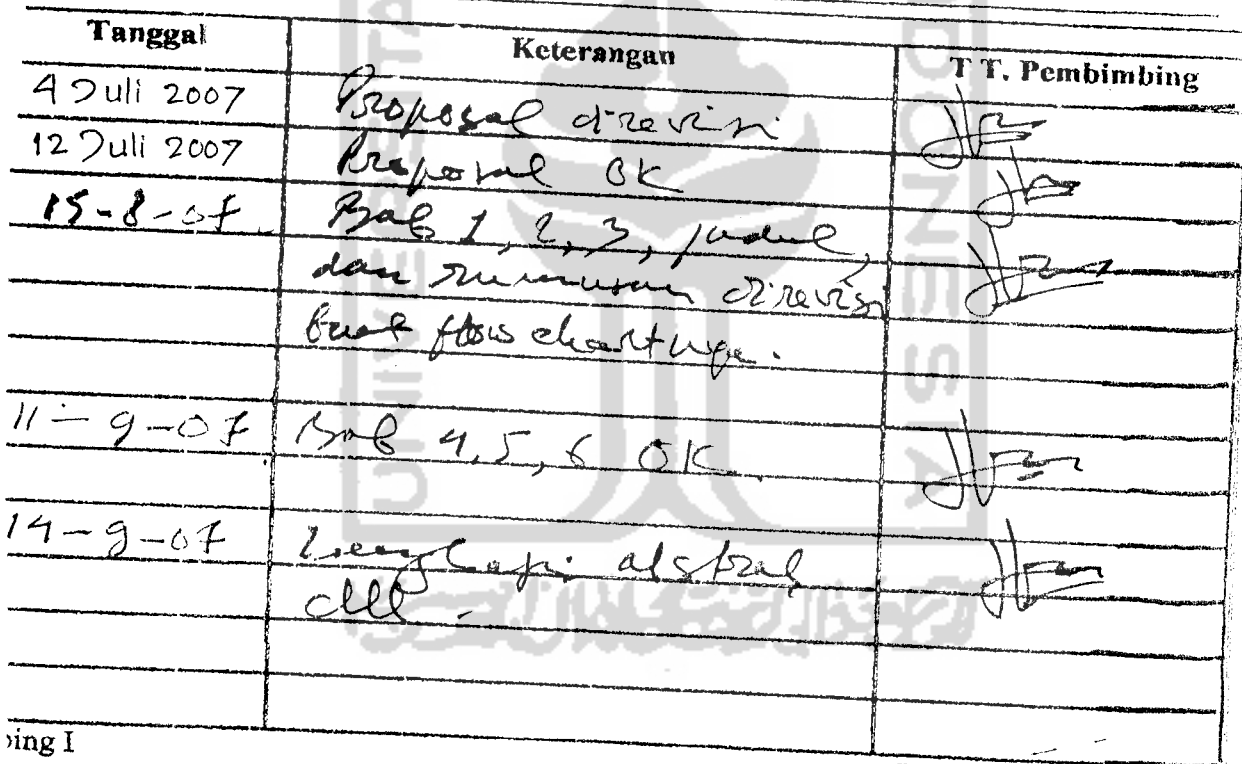 Tanggal Keterangan T T. Pembimbing
4 Juli 2007 Proposal direvisi
12 Juli 2007 Proposal OK
15-8-07. Bab 1, 2, 3, judul,
dan rumusan direvisi
buat flow chartnya.
11-9-07 Bab 4, 5, 6 OK.
14-9-07 Lengkapi abstrak,
dll -
bing I
UNIVERSITAS
INDONESIA